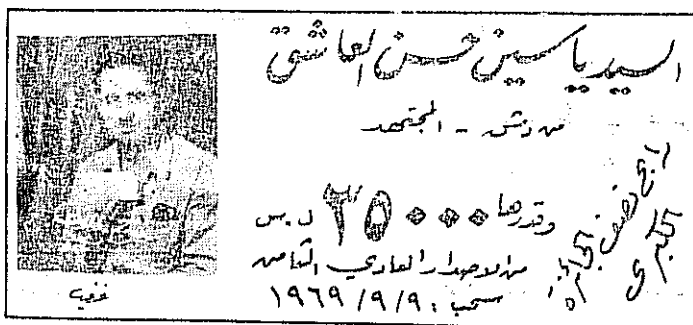 السيد ياسين حسن العاشق
من دمشق - المجتهد
ربح نصف الجائزة
الكبرى
وقدرها ٢٥٠٠٠ ل.س
من الاصدار العادي الثامن
سحب : ١٩٦٩/٩/٩